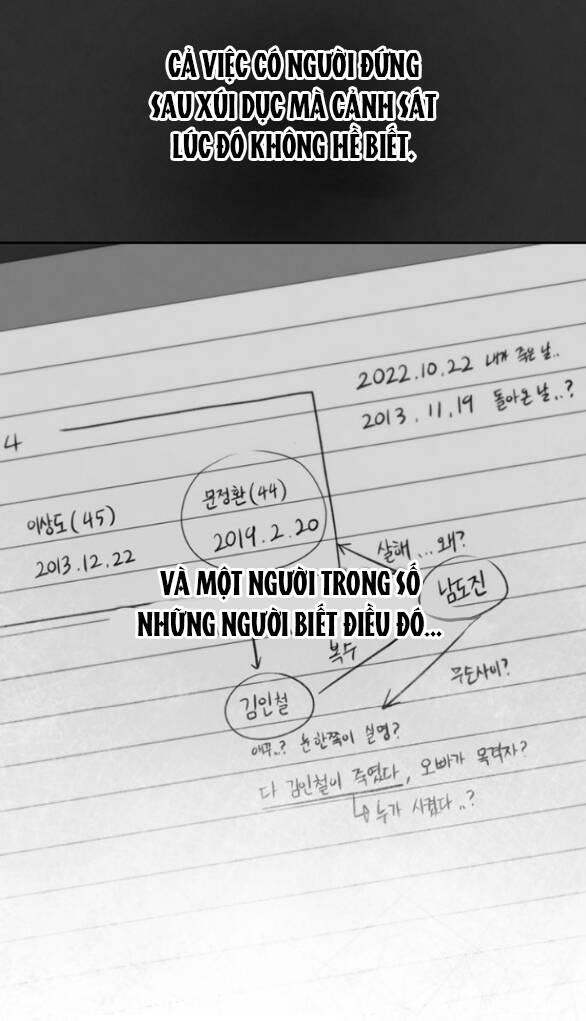 CẢ VIỆC CÓ NGƯỜI ĐỨNG
SAU XÚI DỤC MÀ CẢNH SÁT
LÚC ĐÓ KHÔNG HỀ BIẾT.
2022.10.22 내가 죽은 날..
2013.11.19 돌아온 날..?
4
이상도(45)
2013.12.22
문정환(44)
2019.2.20
살해...왜?
VÀ MỘT NGƯỜI TRONG SỐ
NHỮNG NGƯỜI BIẾT ĐIỀU ĐÓ...
남도진
복수
무슨사이?
김인철
애꾸..? 눈 한쪽이 실명?
다 김인철이 죽였다, 오빠가 목격자?
누가 시켰다..?